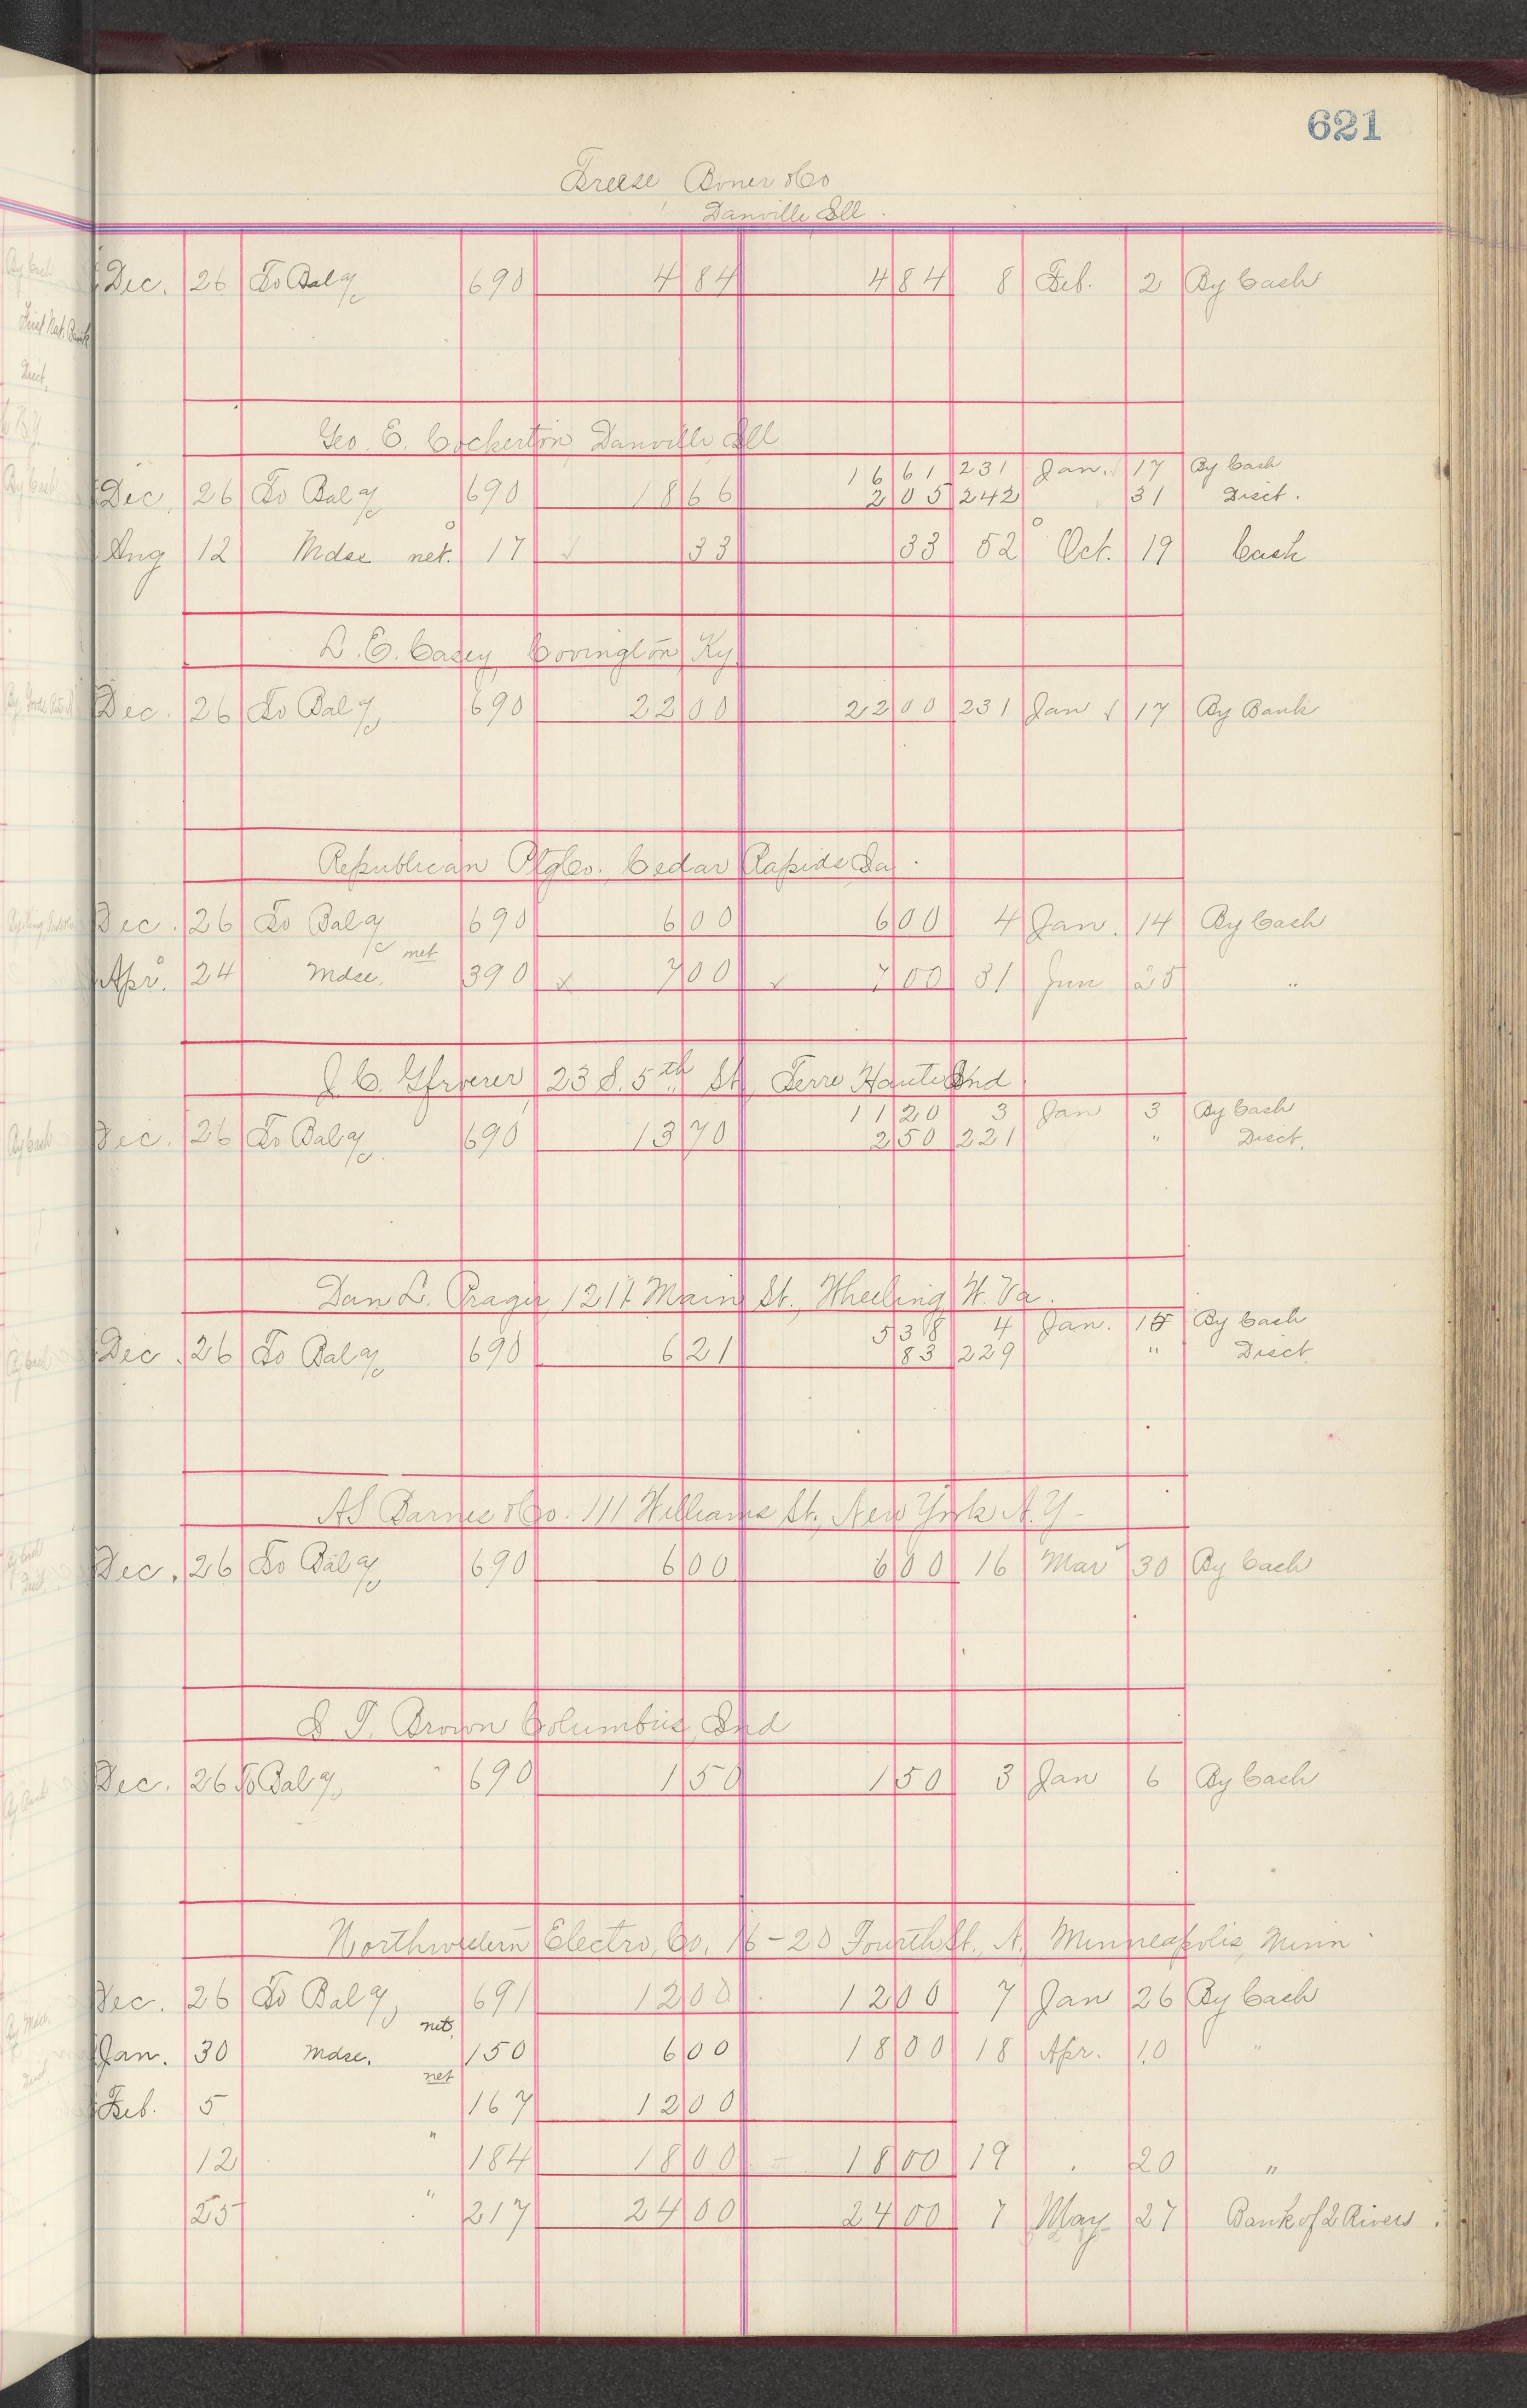 621
Boner & Co
Danville Ill.
Dec. 26 To Bal a/c 690 4 84 4 84 8 Feb. 2 By Cash
Geo. E. Cockerton, Danville Ill
16 61 231 Jan. 17 By Cash
Dec. 26 To Bal a/c 690 18 66 2 05 242 31 Disct.
Aug 12 Mdse net. 17 33 33 52 Oct. 19 Cash
L. E. Casey, Covington, Ky
Dec. 26 To Bal a/c 690 22 00 22 00 231 Jan 17 By Bank
Republican Ptg Co. Cedar Rapids Ia.
Dec. 26 To Bal a/c 690 6 00 6 00 4 Jan. 14 By Cash
Apr. 24 Mdse. net 390 7 00 7 00 31 Jun 25 "
J. C. Gfroerer, 23 S. 5th St, Terre Haute Ind.
11 20 3 Jan 3 By Cash
Dec. 26 To Bal a/c. 690 13 70 2 50 221 " Disct.
Dan L. Prager, Main St., Wheeling, W. Va.
5 38 4 Jan. 15 By Cash
Dec. 26 To Bal a/c 690 6 21 83 229 " Disct
AS Barnes & Co. 111 Williams St., New York N.Y-
Dec. 26 To Bal a/c 690 6 00 6 00 16 Mar 30 By Cash
S. T. Brown Columbus, Ind
Dec. 26 To Bal a/c 690 1 50 1 50 3 Jan 6 By Cash
Northwestern Electro. Co. 16-20 Fourth St., N. Minneapolis, Minn
Dec. 26 To Bal a/c 691 12 00 12 00 7 Jan 26 By Cash
Jan. 30 Mdse. net. 150 6 00 18 00 18 Apr. 10 "
Feb. 5 net 167 12 00
12 " 184 18 00 18 00 19 . 20 "
25 " 217 24 00 24 00 7 May 27 Bank of 2 Rivers